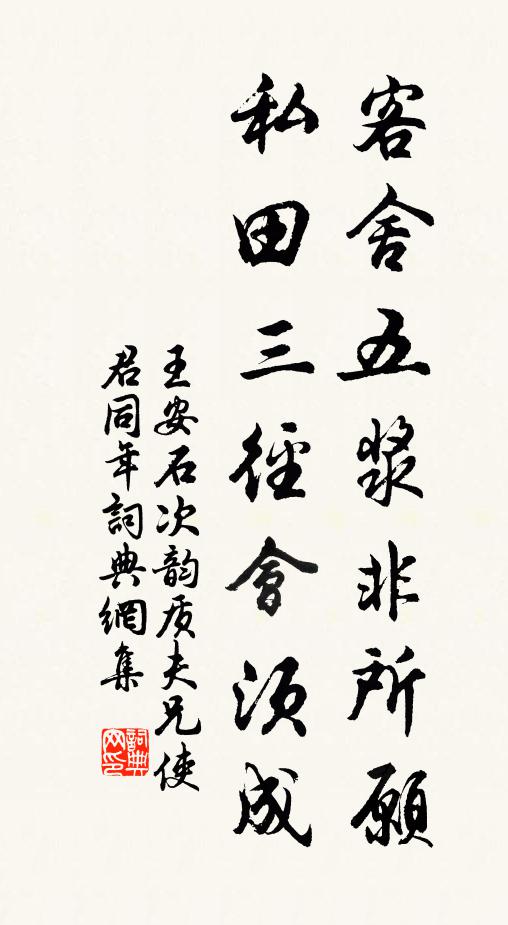 客舍五漿非所願
私田三徑會須成
王安石次韵質夫兄使
君同年詞典網集
詞典网印